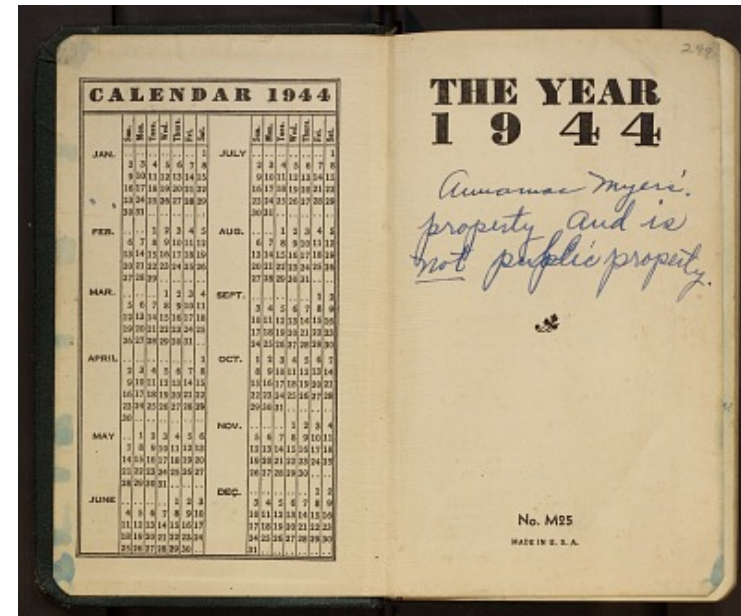 CALENDAR 1944
Sun. Mon. Tues. Wed. Thurs. Fri. Sat.
JAN.
1
2 3 4 5 6 7 8
9 10 11 12 13 14 15
16 17 18 19 20 21 22
23 24 25 26 27 28 29
30 31
FEB.
1 2 3 4 5
6 7 8 9 10 11 12
13 14 15 16 17 18 19
20 21 22 23 24 25 26
27 28 29
MAR.
1 2 3 4
5 6 7 8 9 10 11
12 13 14 15 16 17 18
19 20 21 22 23 24 25
26 27 28 29 30 31
APRIL
1
2 3 4 5 6 7 8
9 10 11 12 13 14 15
16 17 18 19 20 21 22
23 24 25 26 27 28 29
30
MAY
1 2 3 4 5 6
7 8 9 10 11 12 13
14 15 16 17 18 19 20
21 22 23 24 25 26 27
28 29 30 31
JUNE
1 2 3
4 5 6 7 8 9 10
11 12 13 14 15 16 17
18 19 20 21 22 23 24
25 26 27 28 29 30
Sun. Mon. Tues. Wed. Thurs. Fri. Sat.
JULY
1
2 3 4 5 6 7 8
9 10 11 12 13 14 15
16 17 18 19 20 21 22
23 24 25 26 27 28 29
30 31
AUG.
1 2 3 4 5
6 7 8 9 10 11 12
13 14 15 16 17 18 19
20 21 22 23 24 25 26
27 28 29 30 31
SEPT.
1 2
3 4 5 6 7 8 9
10 11 12 13 14 15 16
17 18 19 20 21 22 23
24 25 26 27 28 29 30
OCT.
1 2 3 4 5 6 7
8 9 10 11 12 13 14
15 16 17 18 19 20 21
22 23 24 25 26 27 28
29 30 31
NOV.
1 2 3 4
5 6 7 8 9 10 11
12 13 14 15 16 17 18
19 20 21 22 23 24 25
26 27 28 29 30
DEC.
1 2
3 4 5 6 7 8 9
10 11 12 13 14 15 16
17 18 19 20 21 22 23
24 25 26 27 28 29 30
31
THE YEAR
1944
Annamae Myers'.
property and is
not public property.
No. M25
MADE IN U. S. A.